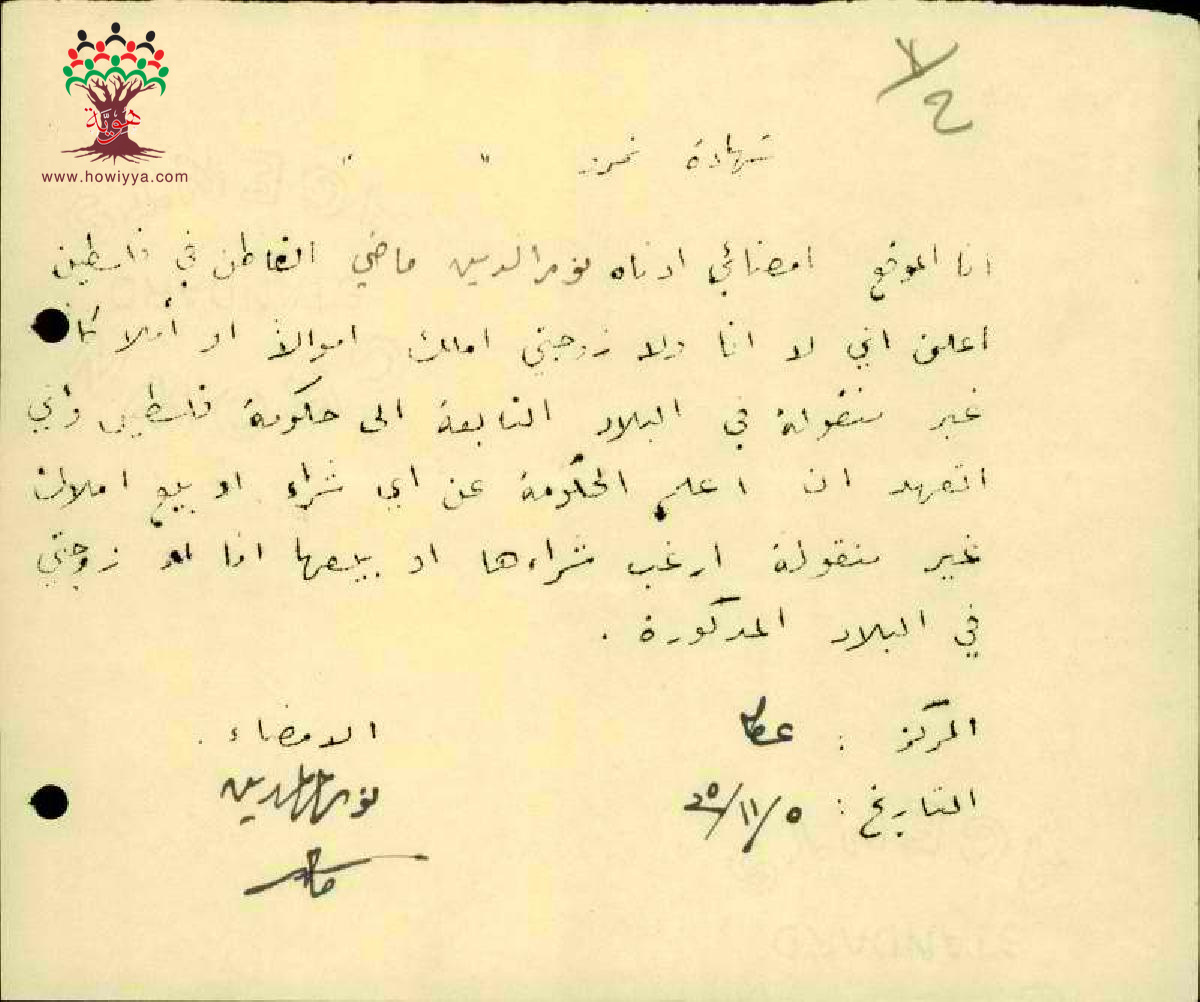 هويّة
www.howiyya.com
شهادة نمرة " "
انا الموقع امضائي ادناه نور الدين ماضي القاطن في فلسطين
اعلن اني لا انا ولا زوجتي املك اموالاً او أملاكاً
غير منقولة في البلاد التابعة الى حكومة فلسطين واني
اتعهد ان اعلم الحكومة عن اي شراء او بيع املاك
غير منقولة ارغب شراءها او بيعها انا او زوجتي
في البلاد المذكورة .
المركز :
الامضاء .
التاريخ : ٥/١١/٣٥
نور الدين